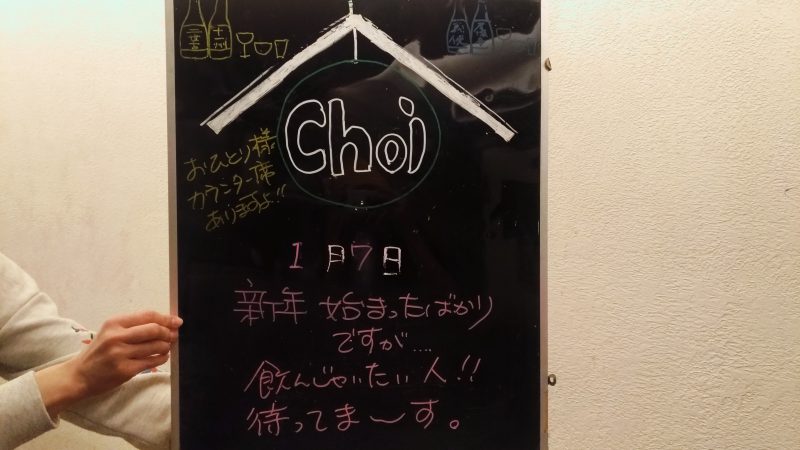 Choi
おひとり様
カウンター席
ありますよ!!
1月7日
新年 始まったばかり
ですが....
飲んじゃいたい人!!
待ってま〜す。